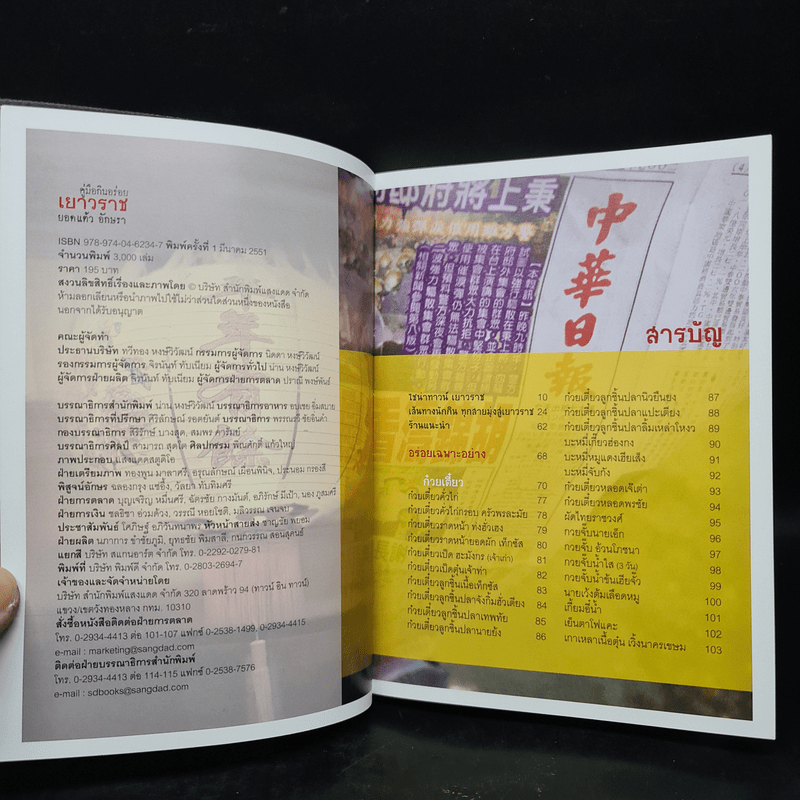 คู่มือกินอร่อย
เยาวราช
ยอดแก้ว อักษรา
ISBN 978-974-04-6234-7 พิมพ์ครั้งที่ 1 มีนาคม 2551
จำนวนพิมพ์ 3,000 เล่ม
ราคา 195 บาท
สงวนลิขสิทธิ์เรื่องและภาพโดย © บริษัท สำนักพิมพ์แสงแดด จำกัด
ห้ามลอกเลียนหรือนำภาพไปใช้ไม่ว่าส่วนใดส่วนหนึ่งของหนังสือ
นอกจากได้รับอนุญาต
คณะผู้จัดทำ
ประธานบริษัท ทวีทอง หงษ์วิวัฒน์ กรรมการผู้จัดการ นิดดา หงษ์วิวัฒน์
รองกรรมการผู้จัดการ จิรนันท์ ทับเนียม ผู้จัดการทั่วไป น่าน หงษ์วิวัฒน์
ผู้จัดการฝ่ายผลิต จิรนันท์ ทับเนียม ผู้จัดการการตลาด ปราณี พงษ์พันธ์
บรรณาธิการสำนักพิมพ์ น่าน หงษ์วิวัฒน์ บรรณาธิการอาหาร อบเชย อิ่มสบาย
บรรณาธิการที่ปรึกษา ศิริลักษณ์ รอดยันต์ บรรณาธิการ พรรณรวี ชัยอินคำ
กองบรรณาธิการ สิริรักษ์ บางสุด, สมพร คำริมย์
บรรณาธิการศิลป์ สามารถ สุดโต ศิลปกรรม พิณศักดิ์ แก้วใหญ่
ภาพประกอบ แสงแดดสตูดิโอ
ฝ่ายเตรียมภาพ ทองพูน มาลาศรี, อรุณลักษณ์ เผื่อนพินิจ, ประนอม กรองสี
พิสูจน์อักษร ฉลองกรุง แซ่อึ้ง, วัลยา ทับทิมศรี
ฝ่ายการตลาด บุญเจริญ หมื่นศรี, ฉัตรชัย กางมันต์, อภิรักษ์ มีเป้า, นอง ภูสมศรี
ฝ่ายการเงิน ชลธิชา อ่วมด้วง, วรรณี หอยโชติ, มุลิวรรณ เจนจบ
ประชาสัมพันธ์ โศภิษฐ์ อภิวันทนาพร หัวหน้าสายส่ง ชาญชัย พยอม
ฝ่ายผลิต นภาภาร ขำชัยภูมิ, ยุทธชัย อินทรชัย, พิมพ์สาลี, กนกวรรณ สอนสุคนธ์
แยกสี บริษัท สแกนอาร์ต จำกัด โทร. 0-2292-0279-81
พิมพ์ที่ บริษัท พิมพ์ดี จำกัด โทร. 0-2803-2694-7
เจ้าของและจัดจำหน่ายโดย
บริษัท สำนักพิมพ์แสงแดด จำกัด 320 ลาดพร้าว 94 (ทาวน์ อิน ทาวน์)
แขวง/เขตวังทองหลาง กทม. 10310
สั่งซื้อหนังสือติดต่อฝ่ายการตลาด
โทร. 0-2934-4413 ต่อ 101-107 แฟกซ์ 0-2538-1499, 0-2934-4415
e-mail : marketing@sangdad.com
ติดต่อฝ่ายบรรณาธิการสำนักพิมพ์
โทร. 0-2934-4413 ต่อ 114-115 แฟกซ์ 0-2538-7576
e-mail : sdbooks@sangdad.com
中華日報
สารบัญ
ไชน่าทาวน์ เยาวราช 10
เส้นทางนักกิน ทุกสายมุ่งสู่เยาวราช 24
ร้านแนะนำ 62
อร่อยเฉพาะอย่าง 68
ก๋วยเตี๋ยว 70
ก๋วยเตี๋ยวคั่วไก่ 77
ก๋วยเตี๋ยวคั่วไก่กรอบ ครัวพรละมัย 78
ก๋วยเตี๋ยวราดหน้า ท่งฮั่วเฮง 79
ก๋วยเตี๋ยวราดหน้ายอดผัก เท็กซัส 80
ก๋วยเตี๋ยวเป็ด ฮะมังกร (เจ้าเก่า) 81
ก๋วยเตี๋ยวเป็ดตุ๋นเจ้าท่า 82
ก๋วยเตี๋ยวลูกชิ้นเนื้อเท็กซัส 83
ก๋วยเตี๋ยวลูกชิ้นปลาจังกิ้มฮั่วเตียง 84
ก๋วยเตี๋ยวลูกชิ้นปลาเทพทัย 85
ก๋วยเตี๋ยวลูกชิ้นปลานายย้ง 86
ก๋วยเตี๋ยวลูกชิ้นปลานิวยืนยง 87
ก๋วยเตี๋ยวลูกชิ้นปลาแปะเตียง 88
ก๋วยเตี๋ยวลูกชิ้นปลาลิ้มเหล่าโหงว 89
บะหมี่เกี๊ยวฮ่องกง 90
บะหมี่หมูแดงเฮียเส็ง 91
บะหมี่จับกัง 92
ก๋วยเตี๋ยวหลอดเจ๊เต่า 93
ก๋วยเตี๋ยวหลอดพรชัย 94
ผัดไทยราชวงศ์ 95
ก๋วยจั๊บนายเอ็ก 96
ก๋วยจั๊บ อ้วนโภชนา 97
ก๋วยจั๊บน้ำใส (3 วัน) 98
ก๋วยจั๊บน้ำข้นเฮียจั๊ว 99
นายเว้งต้มเลือดหมู 100
เกี้ยมอี๋น้ำ 101
เย็นตาโฟแคะ 102
เกาเหลาเนื้อตุ๋น เวิ้งนาครเขษม 103